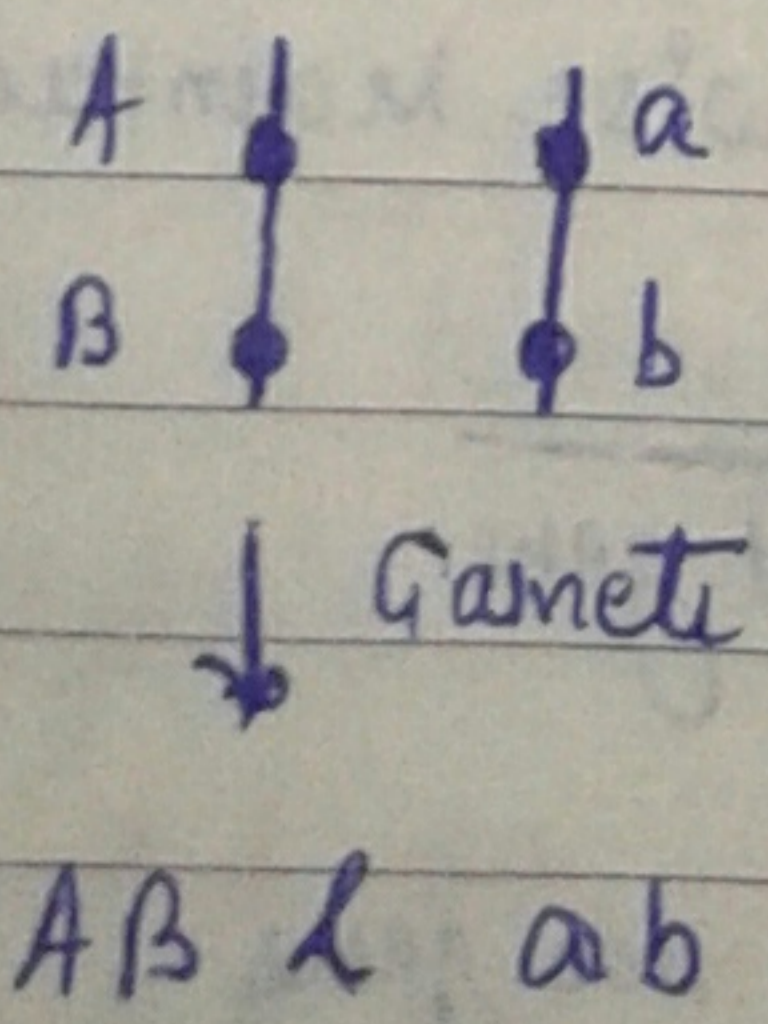 A a
B b
Gamete
AB & ab